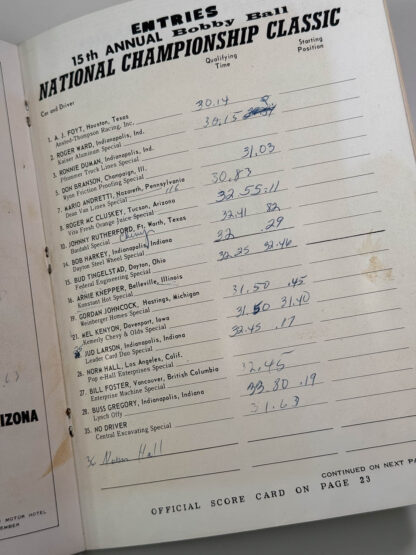 ENTRIES
15th ANNUAL Bobby Ball
NATIONAL CHAMPIONSHIP CLASSIC
Car and Driver Qualifying Time Starting Position
1. A. J. FOYT, Houston, Texas 30.14
Ansted-Thompson Racing, Inc.
2. ROGER WARD, Indianapolis, Ind. 30.15
Kaiser Aluminum Special
3. RONNIE DUMAN, Indianapolis, Ind.
Pfrommer Truck Lines Special 31.03
5. DON BRANSON, Champaign, Ill.
Wynn Friction Proofing Special 30.83
7. MARIO ANDRETTI, Nazareth, Pennsylvania
Dean Van Lines Special 32 55.11
8. ROGER MC CLUSKEY, Tucson, Arizona
Vita Fresh Orange Juice Special 32.41 82
10. JOHNNY RUTHERFORD, Ft. Worth, Texas
Bardahl Special 32 .29
14. BOB HARKEY, Indianapolis, Indiana
Dayton Steel Wheel Special 32.25 32.46
15. BUD TINGELSTAD, Dayton, Ohio
Federal Engineering Special
16. ARNIE KNEPPER, Belleville, Illinois
Konstant Hot Special 31.50 .45
19. GORDON JOHNCOCK, Hastings, Michigan
Weinberger Homes Special 31.50 31.40
21. MEL KENYON, Davenport, Iowa
Kemerly Chevy & Olds Special 32.45 .17
JUD LARSON, Indianapolis, Indiana
Leader Card Duo Special
26. NORM HALL, Los Angeles, Calif.
Pop e-Hall Enterprises Special 32.45
27. BILL FOSTER, Vancouver, British Columbia
Enterprise Machine Special 33.80 .19
28. BUSS GREGORY, Indianapolis, Indiana
Lynch Offy 31.63
35. NO DRIVER
Central Excavating Special
Hall
CONTINUED ON NEXT PA
OFFICIAL SCORE CARD ON PAGE 23
IZONA
MOTOR HOTEL
EMBER